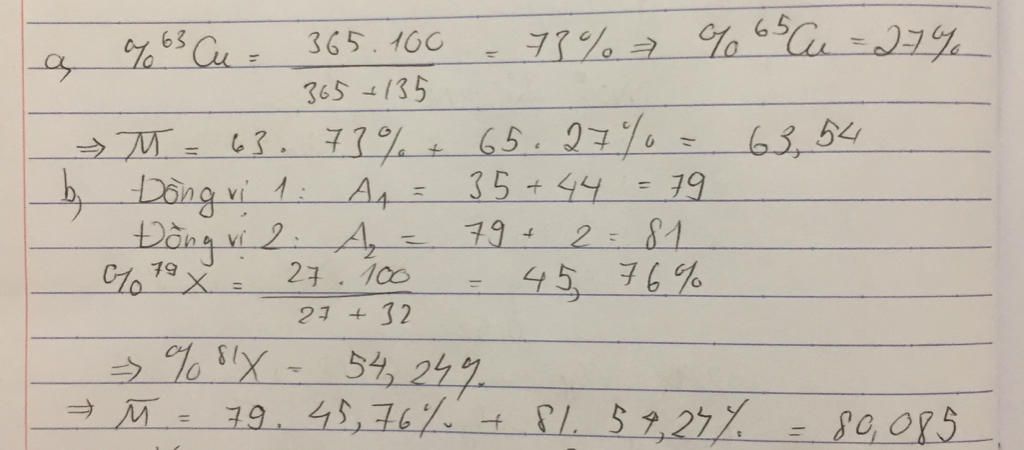 a, % ⁶³Cu = 365 . 100 / 365 + 135 = 73% ⇒ % ⁶⁵Cu = 27%
⇒ M̅ = 63 . 73% + 65 . 27% = 63,54
b, Đồng vị 1 : A₁ = 35 + 44 = 79
Đồng vị 2 : A₂ = 79 + 2 = 81
% ⁷⁹X = 27 . 100 / 27 + 32 = 45,76%
⇒ % ⁸¹X = 54,24%
⇒ M̅ = 79 . 45,76% + 81 . 54,24% = 80,085